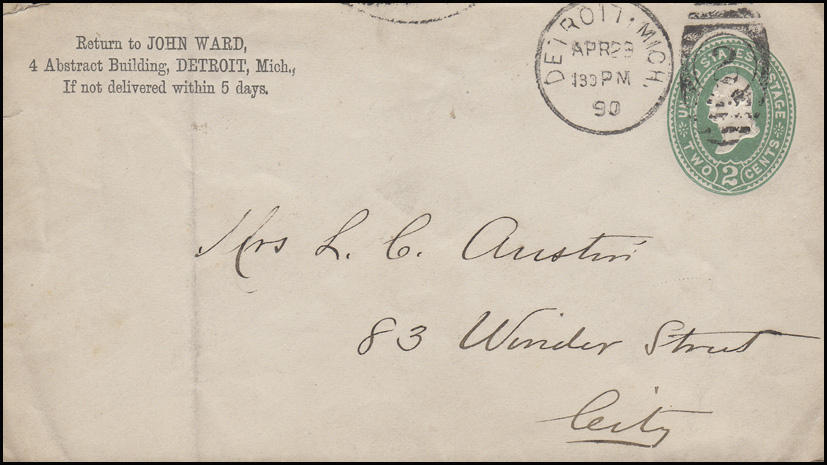 Return to JOHN WARD,
4 Abstract Building, DETROIT, Mich.,
If not delivered within 5 days.
DETROIT, MICH.
APR 28
130 PM
90
UNITED STATES POSTAGE
TWO 2 CENTS
Mrs L. C. Austin
83 Winder Street
City